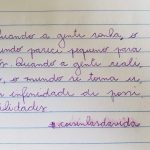 Quando a gente sonha, o
mundo parece pequeno para
nós. Quando a gente realiza,
o mundo se torna u
infinidade de possi
bilidades
#coisinhasdavida